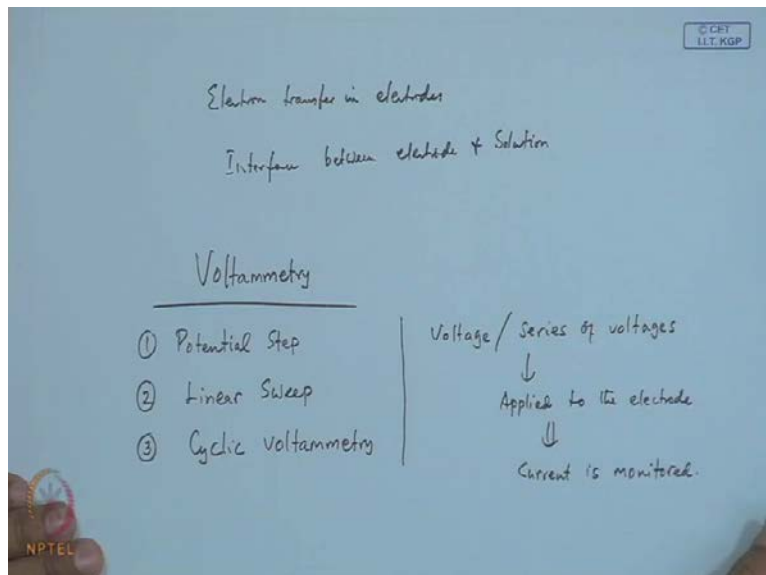 © CET
I.I.T. KGP
Electron transfer in electrodes
Interface between electrode & Solution
Voltammetry
① Potential Step
② Linear Sweep
③ Cyclic voltammetry
Voltage / series of voltages
↓
Applied to the electrode
⇓
Current is monitored.
NPTEL